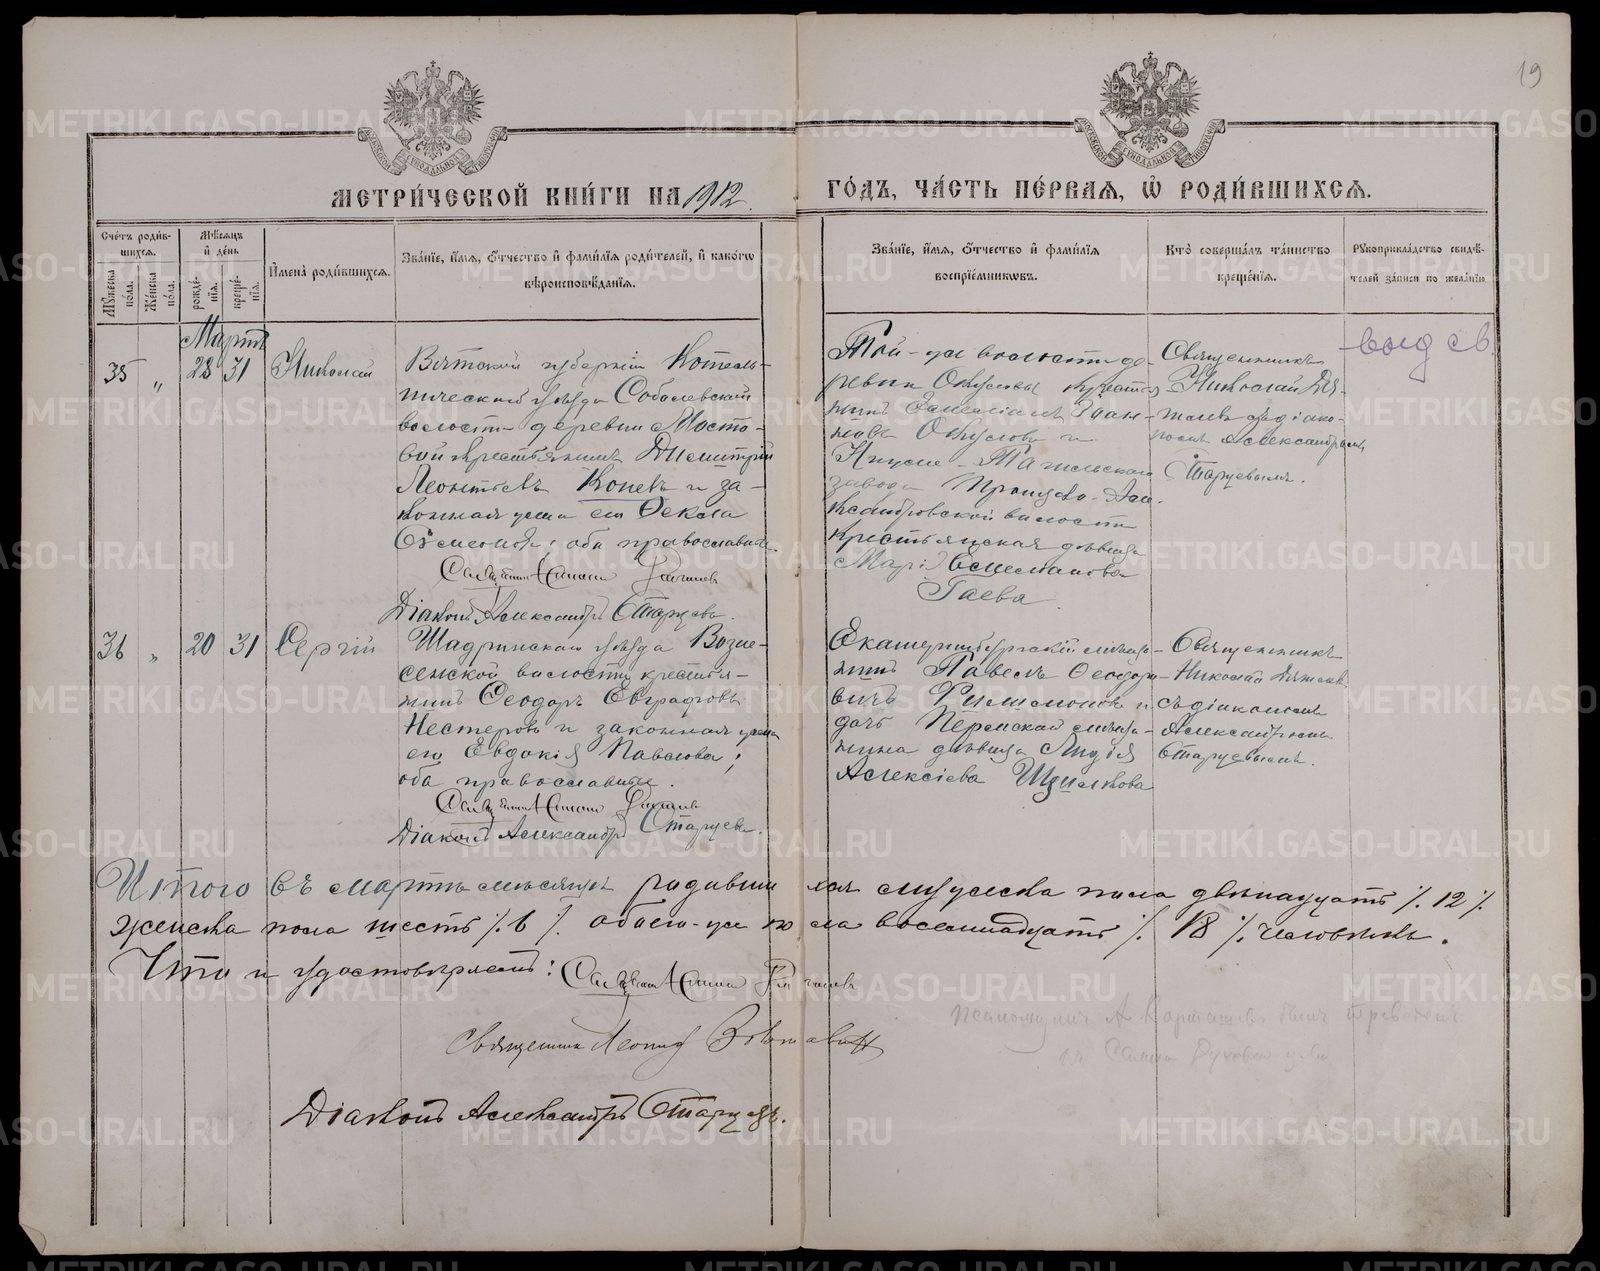 19
МЕТРИ́ЧЕСКОЙ КНИ́ГИ НА 1912 ГО́ДЪ, ЧА́СТЬ ПЕ́РВАЯ, Ѡ҆ РОДИ́ВШИХСЯ.
Сче́тъ роди́вшихся.
Мꙋ́жеска по́ла.
Же́нска по́ла.
Мѣ́сяцъ и҆ де́нь
рожде́нїя.
креще́нїя.
И҆мена̀ роди́вшихся.
Зва́нїе, и҆́мя, ѻ҆́тчество и҆ фами́лїя роди́телей, и҆ како́гѡ
вѣроисповѣ́данїя.
Зва́нїе, и҆́мя, ѻ҆́тчество и҆ фами́лїя
воспрїе́мникѡвъ.
Кто̀ соверша́лъ та́инство
креще́нїя.
Рꙋкоприкла́дство свидѣ́телей за́писи по жела́нїю.
Мартъ
35 „ 28 31 Николай
Вятской губернiи Котель-
ническаго уѣзда Соболевской
волости деревни Мосто-
вой крестьянинъ Димитрiй
Леонтьевъ Коневъ и за-
конная жена его Ѳекла
оба православные.
Дiаконъ Александръ Старцевъ.
Той-же волости де-
ревни Окуловы крестья
нинъ Иван-
новъ Окуловъ и
Нижне-Тагильскаго
завода Троицко-Але-
ксандровской волости
крестьянская дѣвица
Марiя
Гаева
Священникъ
Николай
съ дiако-
номъ Александромъ
Старцевымъ.
выд св.
36 „ 20 31 Сергiй
Шадринскаго уѣзда Возне-
сенской волости крестья-
нинъ Ѳеодоръ Евграфовъ
Нестеровъ и законная жена
его Евдокiя Павлова;
оба православные.
Дiаконъ Александръ Старцевъ.
Екатеринбургскiй мѣща-
нинъ Павелъ Ѳеодоро-
вичъ и
дочь Пермскаго мѣща-
нина дѣвица Лидiя
Алексiева
Священникъ
Николай
съ дiакономъ
Александромъ
Старцевымъ.
Итого въ мартѣ мѣсяцѣ родившихся мужеска пола двѣнадцать ./. 12 ./.
женска пола шесть ./. 6 ./. обоего-же пола восемнадцать ./. 18 ./. человѣкъ.
Что и удостовѣряемъ:
Священникъ Леонид
Дiаконъ Александръ Старцевъ.
METRIKI.GASO-URAL.RU